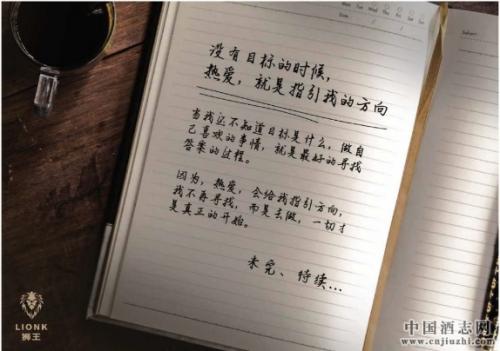 没有目标的时候，
热爱，就是指引我的方向
当我还不知道目标是什么，做自
己喜欢的事情，就是最好的寻找
答案的过程。
因为，热爱，会给我指引方向，
我不再寻找，而是去做，一切才
是真正的开始。
未完、待续...
LIONK
狮王
中国酒志网
www.cnjiuzhi.com